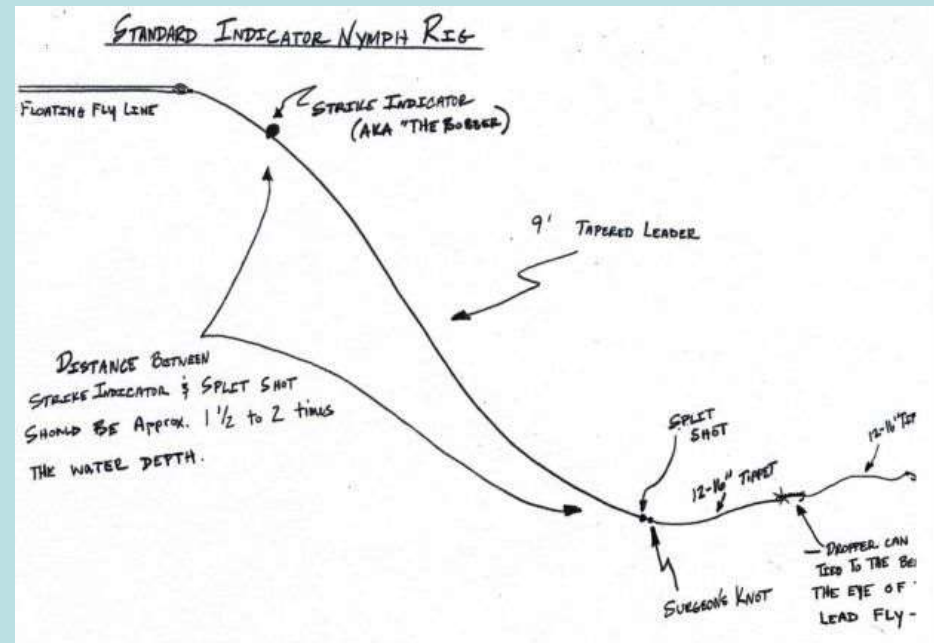 STANDARD INDICATOR NYMPH RIG
FLOATING FLY LINE
STRIKE INDICATOR
(AKA "THE BOBBER)
9' TAPERED LEADER
DISTANCE BETWEEN
STRIKE INDICATOR & SPLIT SHOT
SHOULD BE Approx. 1 1/2 to 2 times
THE WATER DEPTH.
SPLIT
SHOT
12-16" TIPPET
12-16"
SURGEON'S KNOT
— DROPPER CAN
TIED TO THE
THE EYE OF
LEAD FLY -